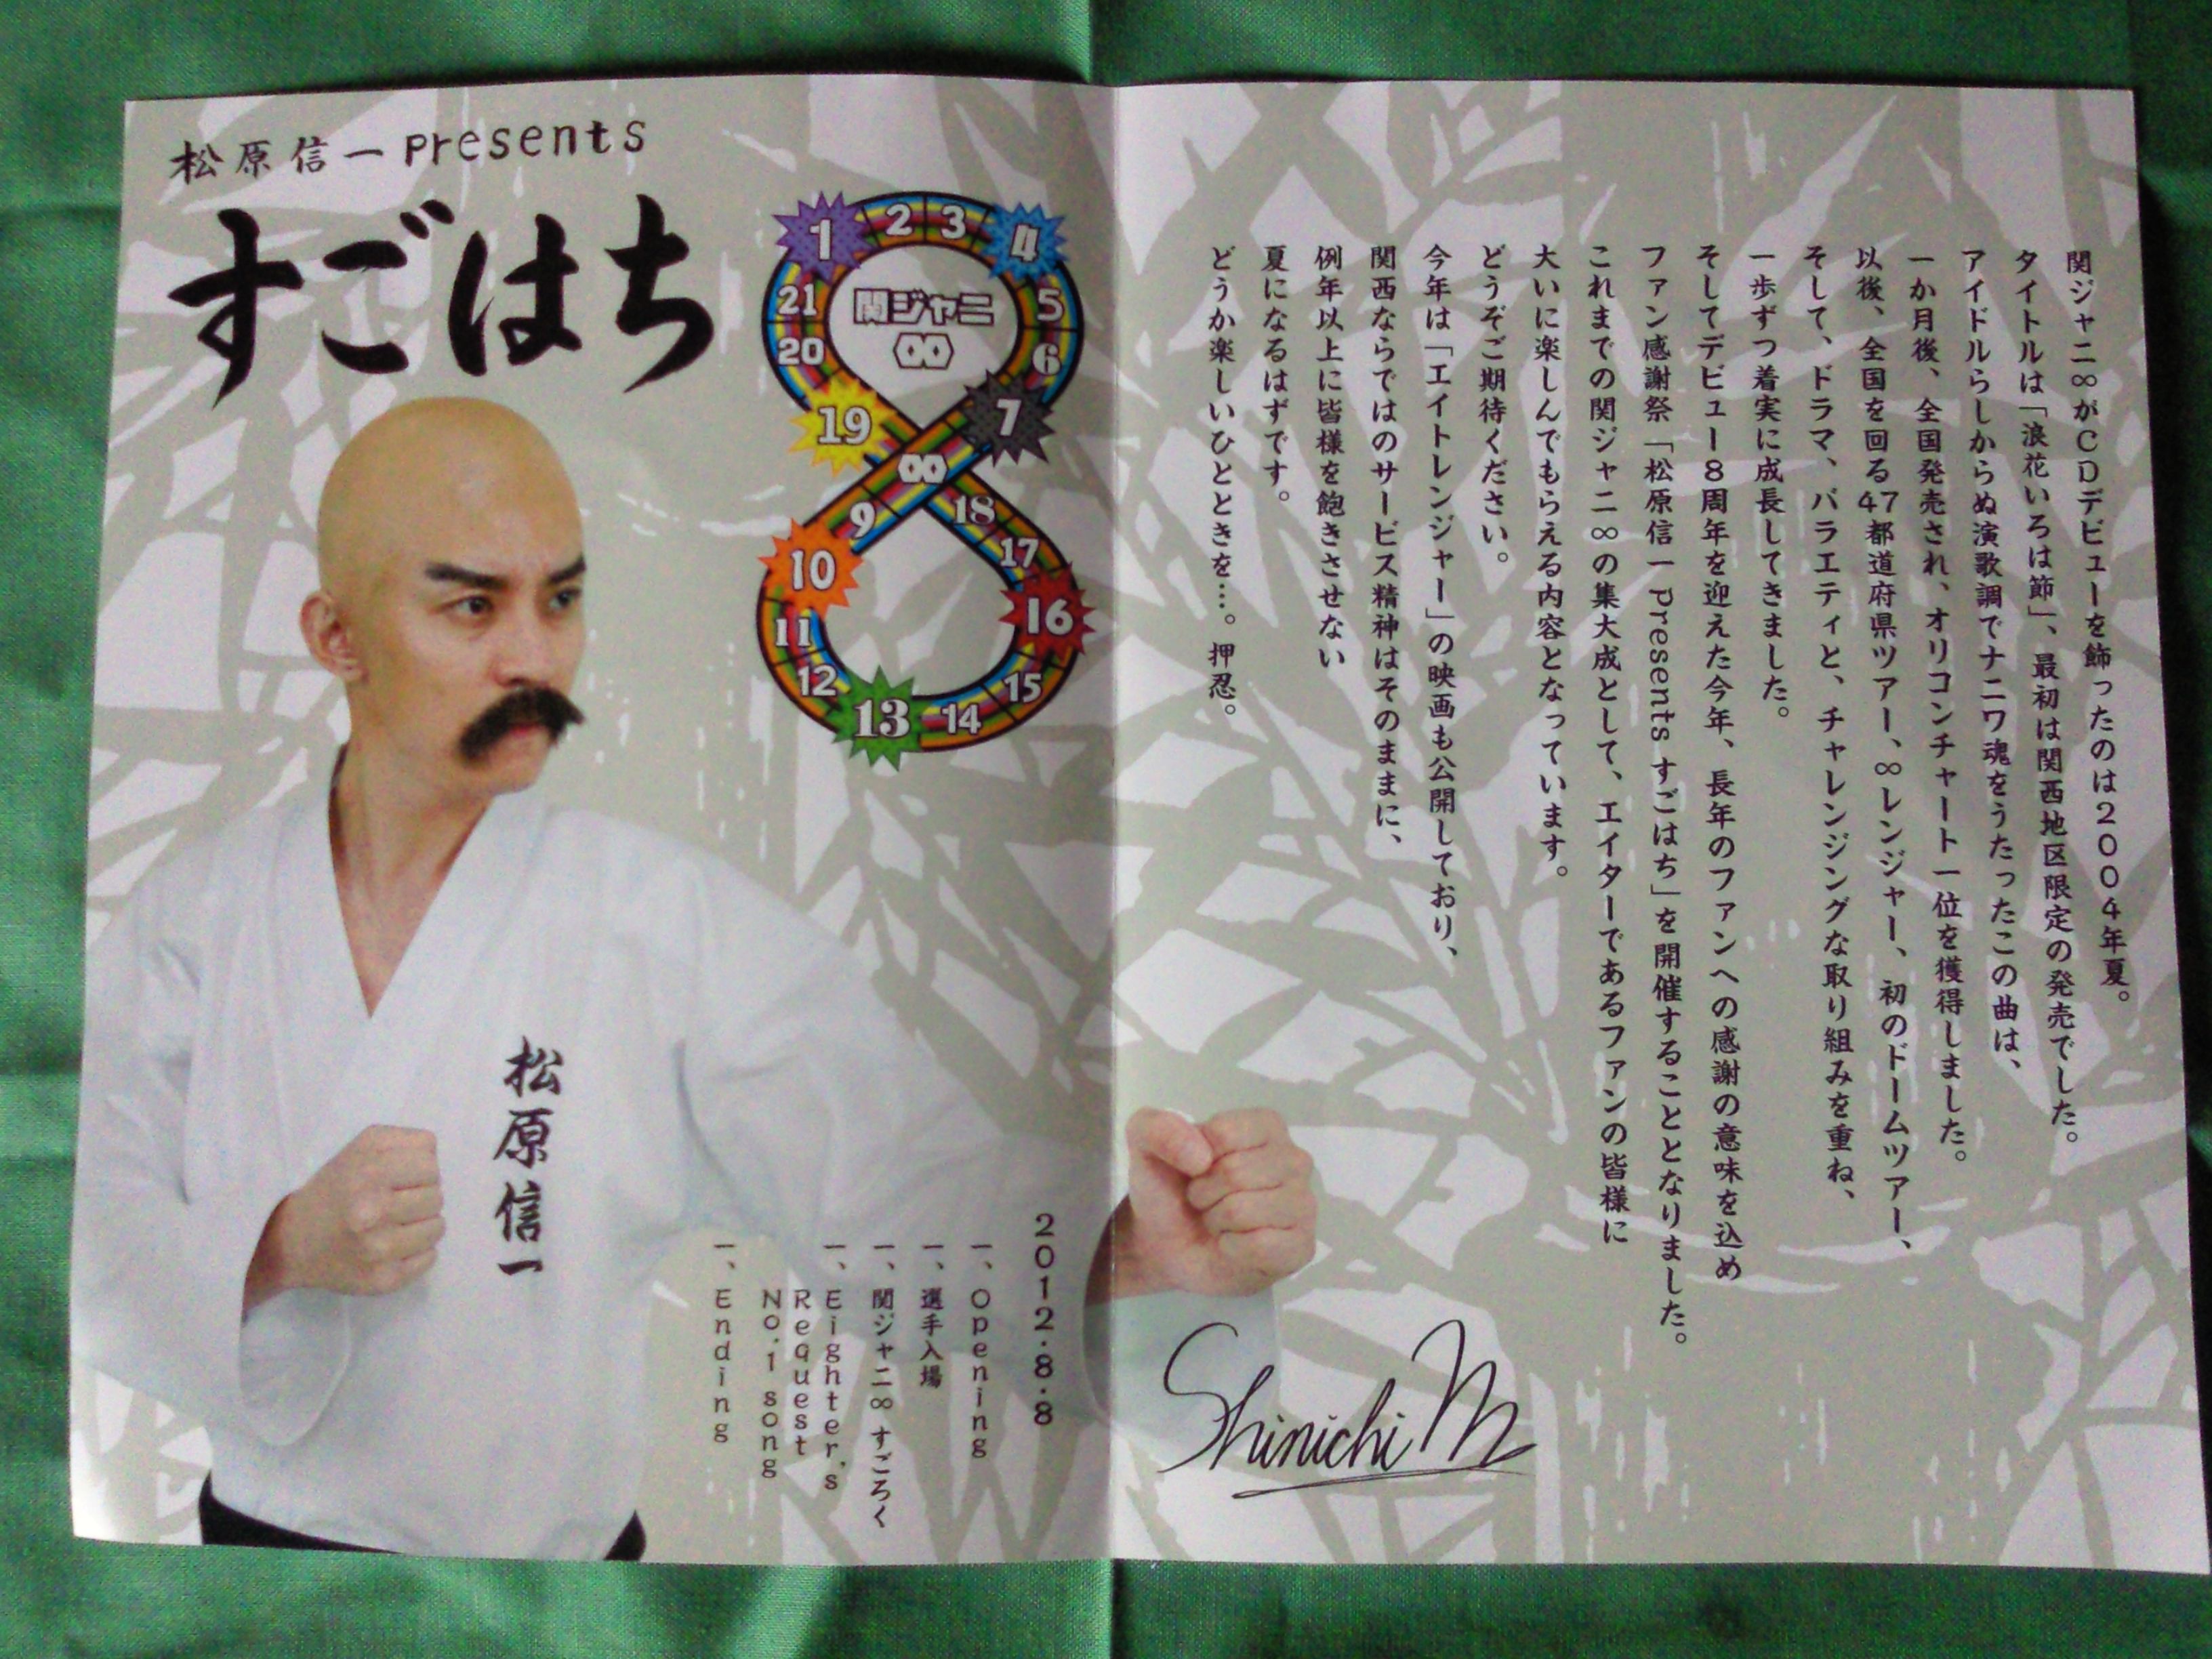 松原信一presents
すごはち
1
2
3
4
5
6
7
∞
9
10
11
12
13
14
15
16
17
18
19
20
21
関ジャニ
∞
松原信一
2012.8.8
一、Opening
一、選手入場
一、関ジャニ∞ すごろく
一、Eighter's
Request
No.1 song
一、Ending
関ジャニ∞がCDデビューを飾ったのは2004年夏。
タイトルは「浪花いろは節」、最初は関西地区限定の発売でした。
アイドルらしからぬ演歌調でナニワ魂をうたったこの曲は、
一か月後、全国発売され、オリコンチャート一位を獲得しました。
以後、全国を回る47都道府県ツアー、∞レンジャー、初のドームツアー、
そして、ドラマ、バラエティと、チャレンジングな取り組みを重ね、
一歩ずつ着実に成長してきました。
そしてデビュー8周年を迎えた今年、長年のファンへの感謝の意味を込め
ファン感謝祭「松原信一presentsすごはち」を開催することとなりました。
これまでの関ジャニ∞の集大成として、エイターであるファンの皆様に
大いに楽しんでもらえる内容となっています。
どうぞご期待ください。
今年は「エイトレンジャー」の映画も公開しており、
関西ならではのサービス精神はそのままに、
例年以上に皆様を飽きさせない
夏になるはずです。
どうか楽しいひとときを…。押忍。
Shinichi M